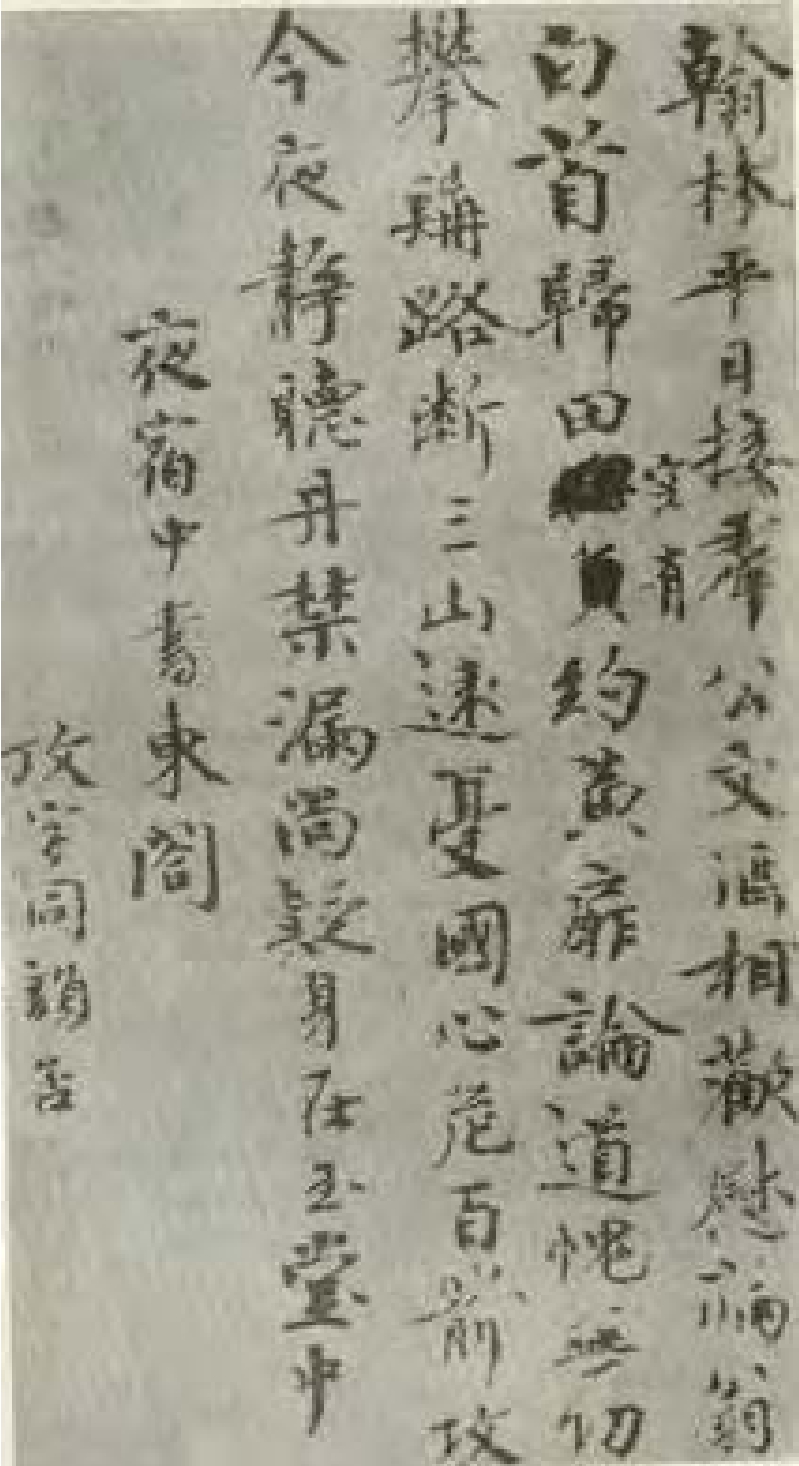 翰林平日接羣公文酒相歡慰病翁
空有
白首歸田約黃扉論道愧無功
攀髯路斷三山遠憂國心危百箭攻
今夜靜聽丹禁漏尚疑身在玉堂中
夜宿中書東閣
攻字同韻否